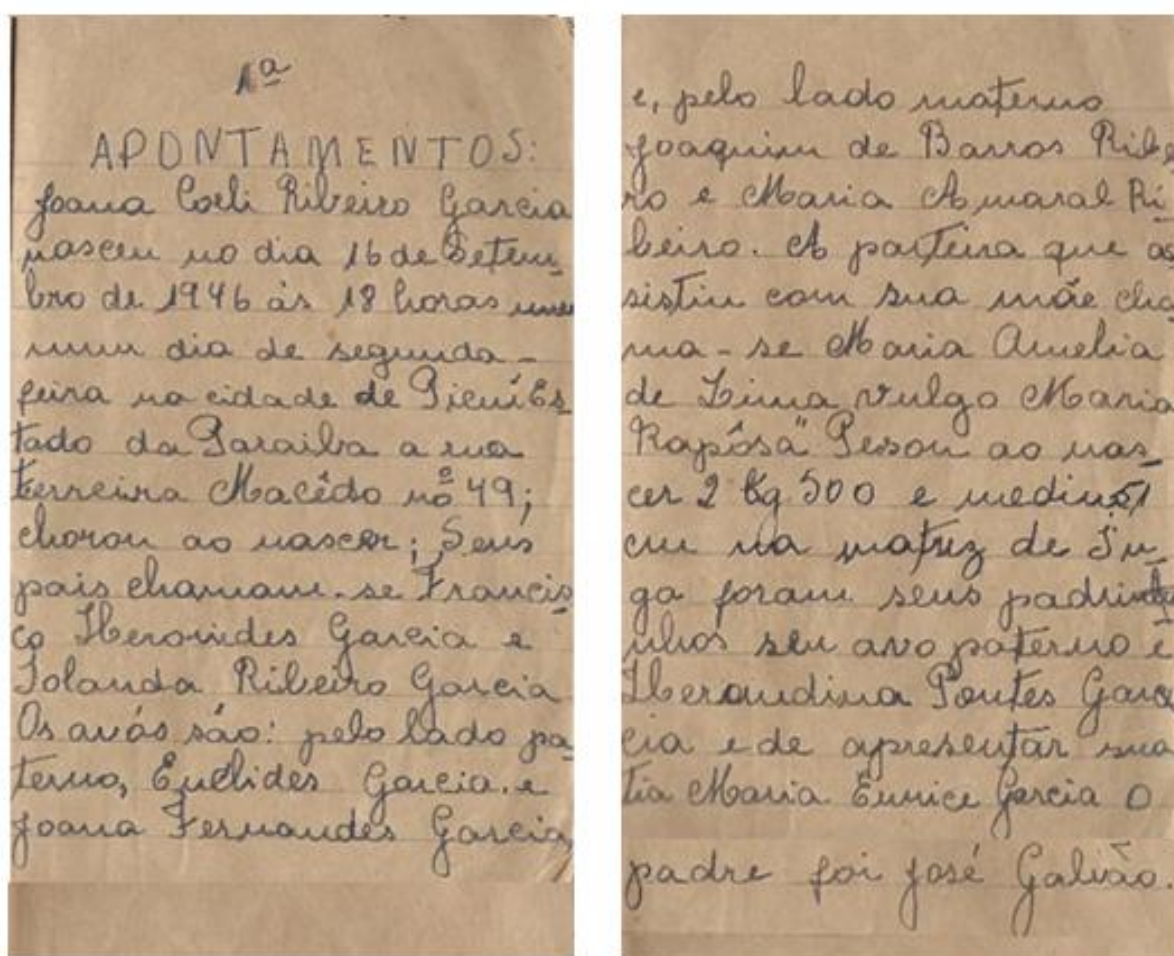 1ª
APONTAMENTOS:
Joana Coeli Ribeiro Garcia
nasceu no dia 16 de Setem_
bro de 1946 ás 18 horas
num dia de segunda_
feira na cidade de Picuí Es_
tado da Paraiba a rua
Ferreira Macêdo nº 49;
chorou ao nascer; Seus
pais chamam-se Francis_
co Heronides Garcia e
Iolanda Ribeiro Garcia
Os avós são: pelo lado pa_
terno, Euclides Garcia. e
Joana Fernandes Garcia,
e, pelo lado materno
Joaquim de Barros Ribe
ro e Maria Amaral Ri_
beiro. A parteira que as
sistiu com sua mãe cha_
ma-se Maria Amelia
de Lima vulgo Maria
Rapôsa" Pesou ao nas_
cer 2 Kg 500 e mediu 51
cm na matriz de In_
ga foram seus
nhos seu avo paterno e
Herondina Pontes Garc
cia e de apresentar sua
tia Maria Eunice Garcia O
padre foi José Galvão.